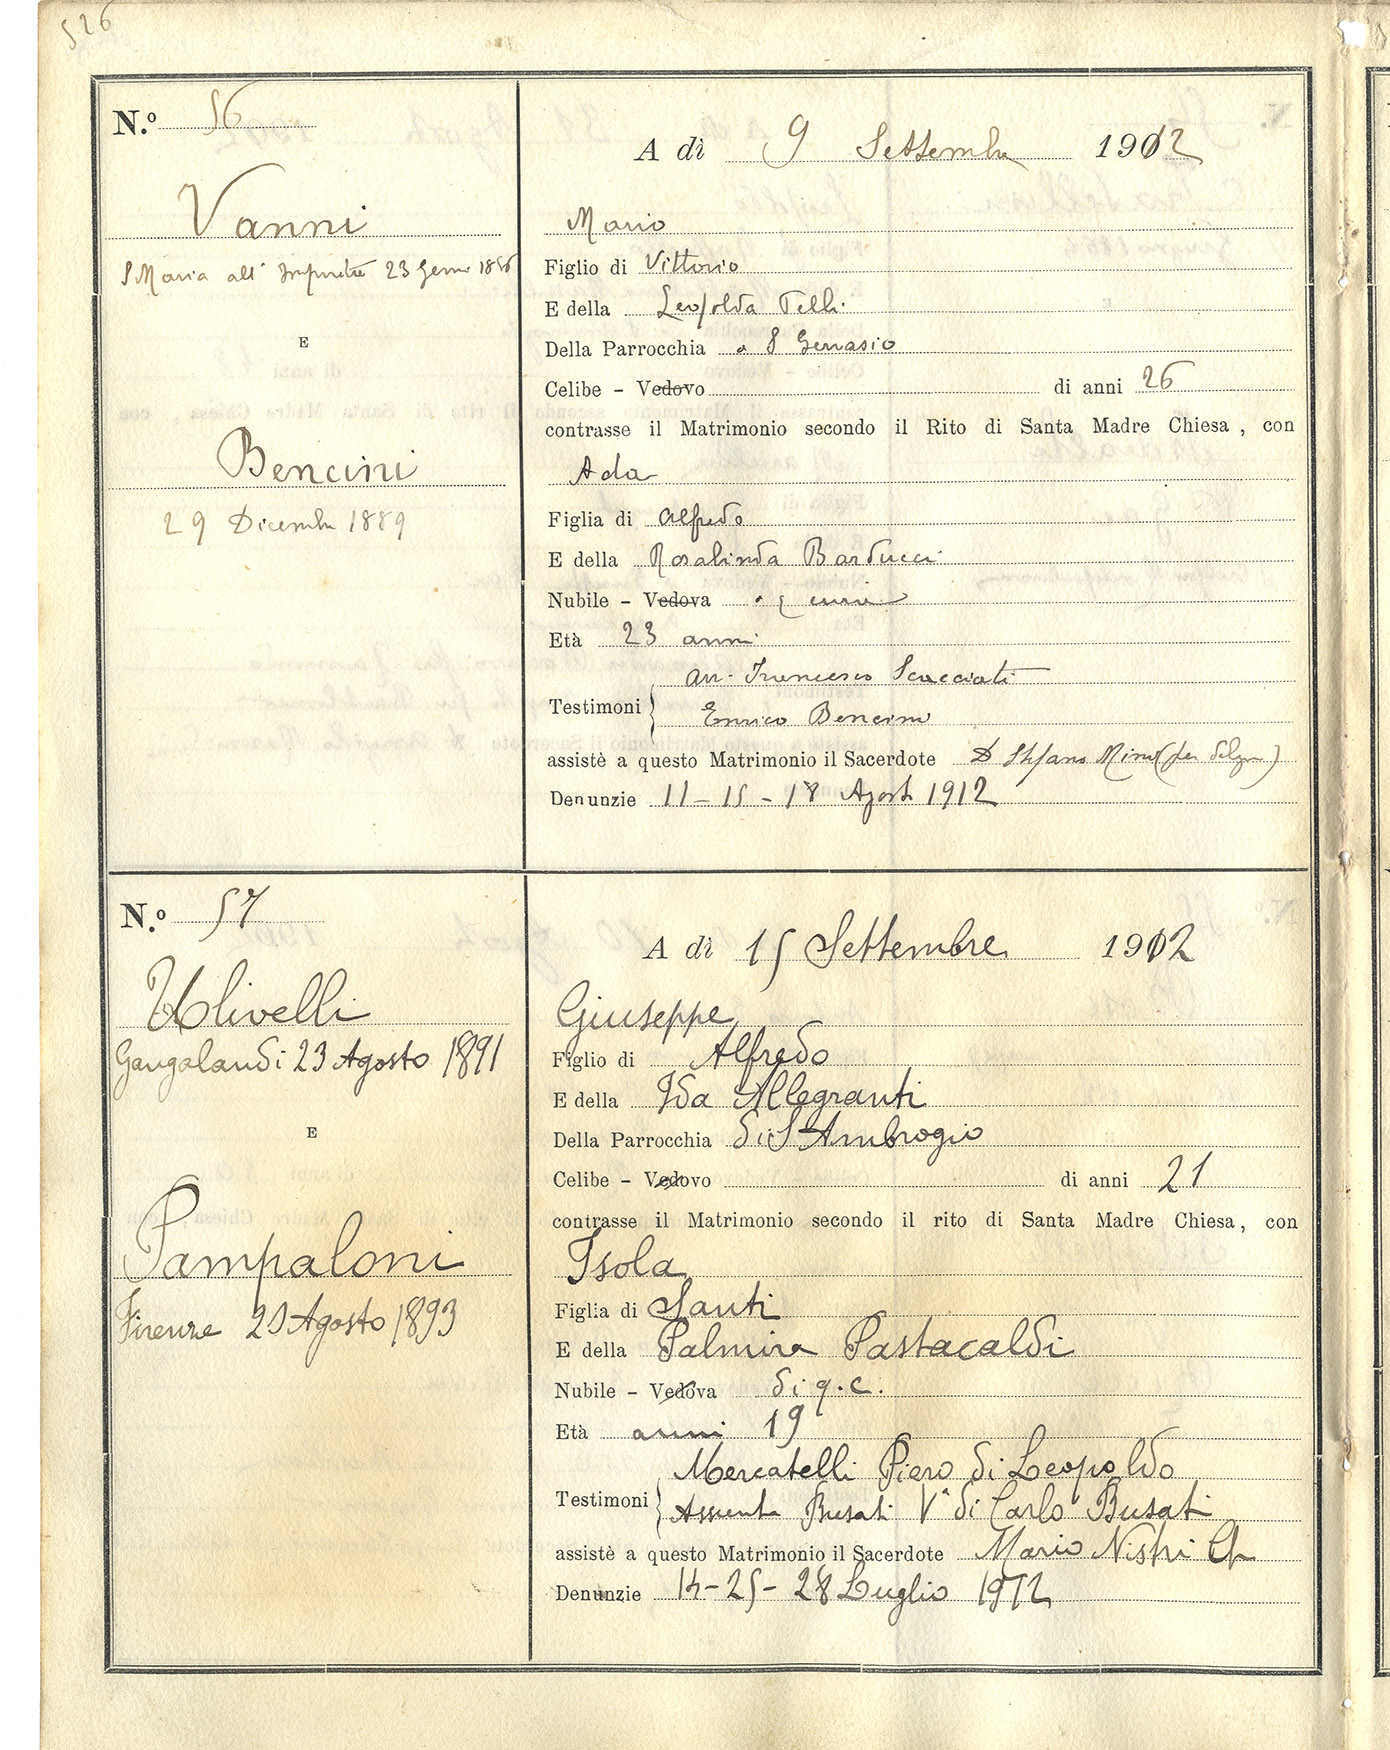 526
N.º 56
A dì 9 Settembre 1912
Vanni
S Maria all' Impruneta 23 Genn 1886
E
Bencini
29 Dicembre 1889
Mario
Figlio di Vittorio
E della Leopolda Telli
Della Parrocchia a S Gervasio
Celibe - Vedovo di anni 26
contrasse il Matrimonio secondo il Rito di Santa Madre Chiesa, con
Ada
Figlia di Alfredo
E della Rosalinda Barducci
Nubile - Vedova q cura
Età 23 anni
Testimoni Francesco Scacciati
Enrico Bencini
assistè a questo Matrimonio il Sacerdote D Stefano Mini (per Delgne)
Denunzie 11 - 15 - 18 Agost 1912
N.º 57
A dì 15 Settembre 1912
Ulivelli
Gangalandi 23 Agosto 1891
E
Pampaloni
Firenze 20 Agosto 1893
Giuseppe
Figlio di Alfredo
E della Ida Allegranti
Della Parrocchia di S Ambrogio
Celibe - Vedovo di anni 21
contrasse il Matrimonio secondo il rito di Santa Madre Chiesa, con
Isola
Figlia di Santi
E della Palmira Pastacaldi
Nubile - Vedova di q. c.
Età anni 19
Testimoni Mercatelli Piero di Leopoldo
Assunta Busati Vª di Carlo Busati
assistè a questo Matrimonio il Sacerdote Mario Nistri
Denunzie 14 - 25 - 28 Luglio 1912